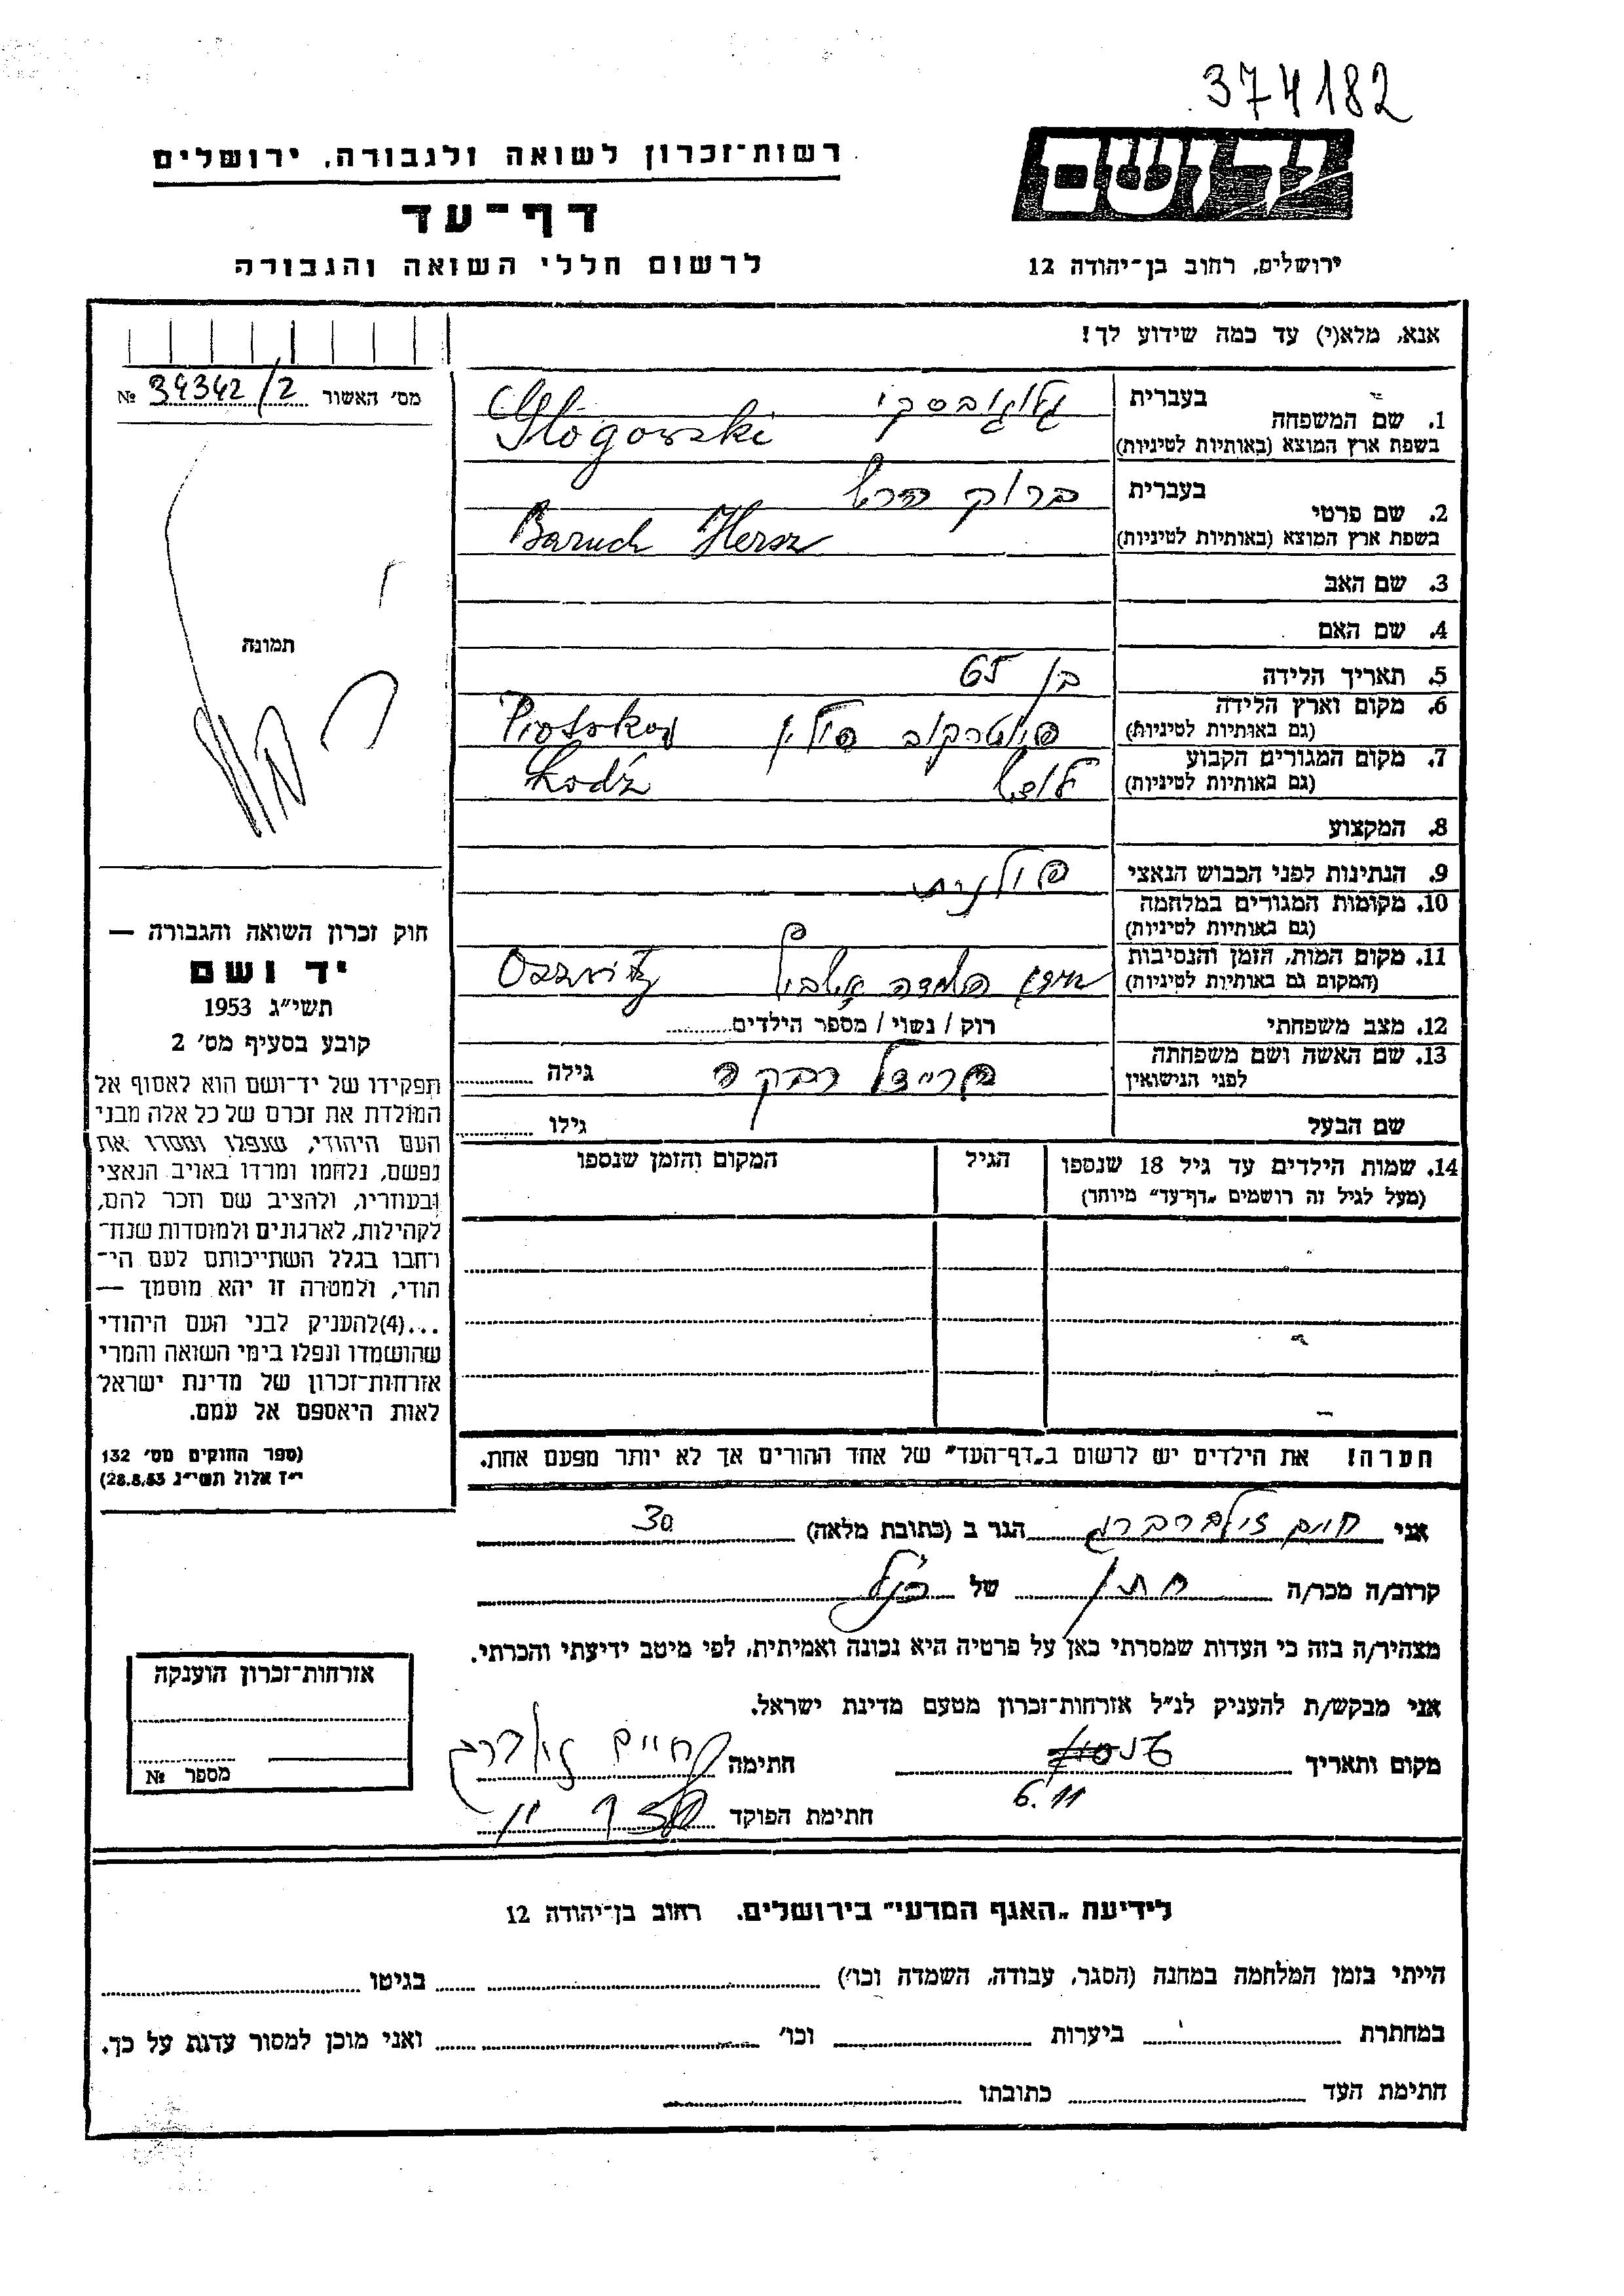 374182
יד ושם
רשות־זכרון לשואה ולגבורה, ירושלים
דף־עד
לרשום חללי השואה והגבורה
ירושלים, רחוב בן־יהודה 12
אנא, מלא(י) עד כמה שידוע לך!
מס׳ האשור 34342/2 №
1. שם המשפחה
בעברית גלוגובסקי
בשפת ארץ המוצא (באותיות לטיניות) Głogowski
2. שם פרטי
בעברית ברוך הרש
בשפת ארץ המוצא (באותיות לטיניות) Baruch Hersz
3. שם האב
4. שם האם
5. תאריך הלידה בן 65
6. מקום וארץ הלידה
(גם באותיות לטיניות) פיוטרקוב פולין Piotrkow
7. מקום המגורים הקבוע
(גם באותיות לטיניות) לודז Łodź
8. המקצוע
9. הנתינות לפני הכבוש הנאצי פולנית
10. מקומות המגורים במלחמה
(גם באותיות לטיניות)
11. מקום המות, הזמן והנסיבות
(המקום גם באותיות לטיניות)
12. מצב משפחתי רוק / נשוי / מספר הילדים
13. שם האשה ושם משפחתה
לפני הנישואין פריידל רבקה גילה
שם הבעל גילו
14. שמות הילדים עד גיל 18 שנספו
(מעל לגיל זה רושמים „דף־עד” מיוחד)
הגיל
המקום והזמן שנספו
הערה! את הילדים יש לרשום ב„דף־העד” של אחד ההורים אך לא יותר מפעם אחת.
תמונה
חוק זכרון השואה והגבורה —
יד ושם
תשי״ג 1953
קובע בסעיף מס׳ 2
תפקידו של יד־ושם הוא לאסוף אל
המולדת את זכרם של כל אלה מבני
העם היהודי, שנפלו ומסרו את
נפשם, נלחמו ומרדו באויב הנאצי
ובעוזריו, ולהציב שם וזכר להם,
לקהילות, לארגונים ולמוסדות שנח־
רחבו בגלל השתייכותם לעם הי־
הודי, ולמטרה זו יהא מוסמך —
...(4)להעניק לבני העם היהודי
שהושמדו ונפלו בימי השואה והמרי
אזרחות־זכרון של מדינת ישראל
לאות היאספם אל עמם.
(ספר החוקים מס׳ 132
י״ז אלול תשי״ג 28.8.53)
אני חיים זילברברג הגר ב (כתובת מלאה) 30
קרוב/ה מכר/ה חתן של הנ״ל
מצהיר/ה בזה כי העדות שמסרתי כאן על פרטיה היא נכונה ואמיתית, לפי מיטב ידיעתי והכרתי.
אני מבקש/ת להעניק לנ״ל אזרחות־זכרון מטעם מדינת ישראל.
מקום ותאריך 6.11 חתימה
חתימת הפוקד
אזרחות־זכרון הוענקה
מספר №
לידיעת „האגף המדעי” בירושלים, רחוב בן־יהודה 12
הייתי בזמן המלחמה במחנה (הסגר, עבודה, השמדה וכו׳) בגיטו
במחתרת ביערות וכו׳ ואני מוכן למסור עדות על כך.
חתימת העד כתובתו